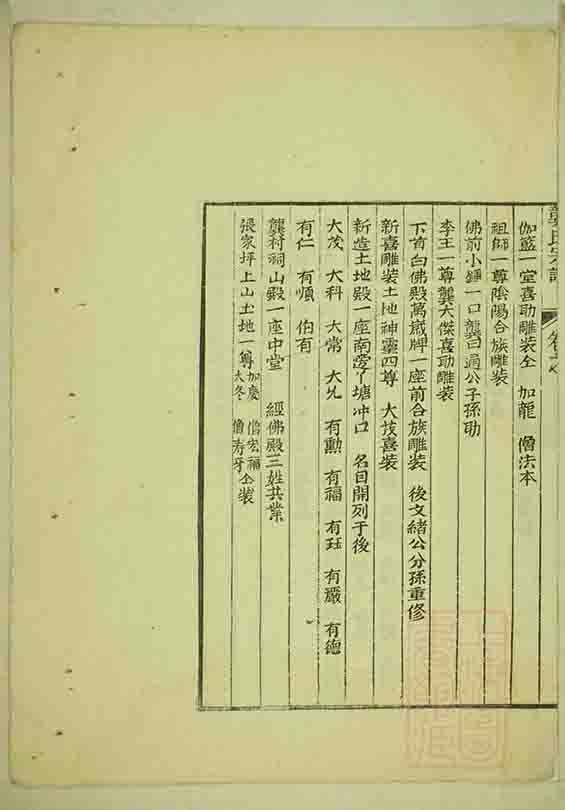 龔氏宗譜 卷之
伽籃一堂喜助雕裝仝 加龍 僧法本
祖師一尊陰陽合族雕裝
佛前小鍾一口龔曰過公子孫助
李王一尊龔大傑喜助雕裝
下首白佛殿萬歲牌一座前合族雕裝 後文緒公分孫重修
新喜雕裝土地神靈四尊 大茂喜裝
新造土地殿一座南滂丫塘冲口 名目開列于後
大茂 大科 大常 大允 有勳 有福 有珏 有嚴 有德
有仁 有順 伯有
龔村祠山殿一座中堂 經佛殿三姓共業
張家坪上山土地一尊 加慶 僧宏福
大冬 僧寿牙仝裝